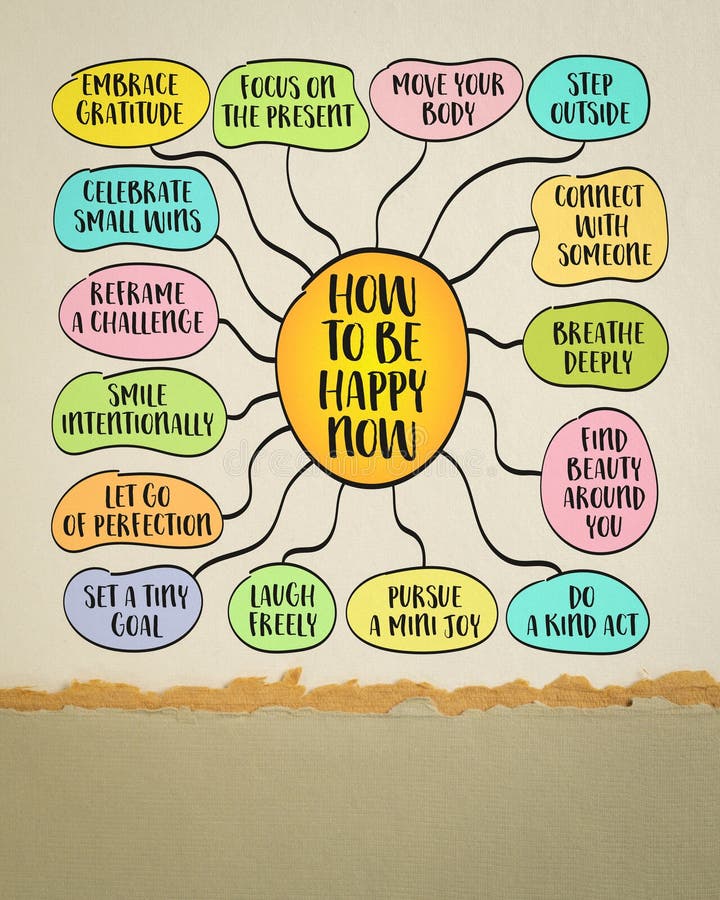 EMBRACE
GRATITUDE
FOCUS ON
THE PRESENT
MOVE YOUR
BODY
STEP
OUTSIDE
CELEBRATE
SMALL WINS
CONNECT
WITH
SOMEONE
REFRAME
A CHALLENGE
HOW
TO BE
HAPPY
NOW
BREATHE
DEEPLY
SMILE
INTENTIONALLY
FIND
BEAUTY
AROUND
YOU
LET GO
OF PERFECTION
SET A TINY
GOAL
LAUGH
FREELY
PURSUE
A MINI JOY
DO
A KIND ACT
dreamstime